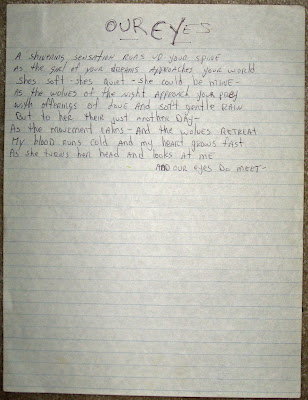 OUR EYES
A SHIVERING SENSATION RUNS UP YOUR SPINE
AS THE GIRL OF YOUR DREAMS APPROACHES YOUR WORLD
SHES SOFT - SHES QUIET - SHE COULD BE MINE -
AS THE WOLVES OF THE NIGHT APPROACH YOUR PREY
WITH OFFERINGS OF LOVE AND SOFT GENTLE RAIN
BUT TO HER THEIR JUST ANOTHER DAY -
AS THE MOVEMENT CALMS - AND THE WOLVES RETREAT
MY BLOOD RUNS COLD AND MY HEART GROWS FAST
AS SHE TURNS HER HEAD AND LOOKS AT ME
AND OUR EYES DO MEET -